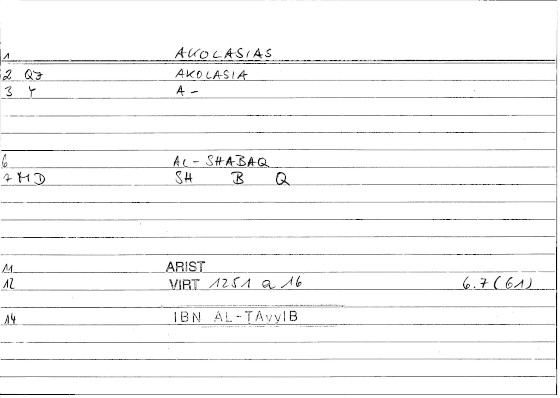 1 AKOLASIAS
2 Q7 AKOLASIA
3 Y A -
6 AL - SHABAQ
7 MD SH B Q
11 ARIST
12 VIRT 1251 a 16 6.7 (61)
14 IBN AL-TAyyIB